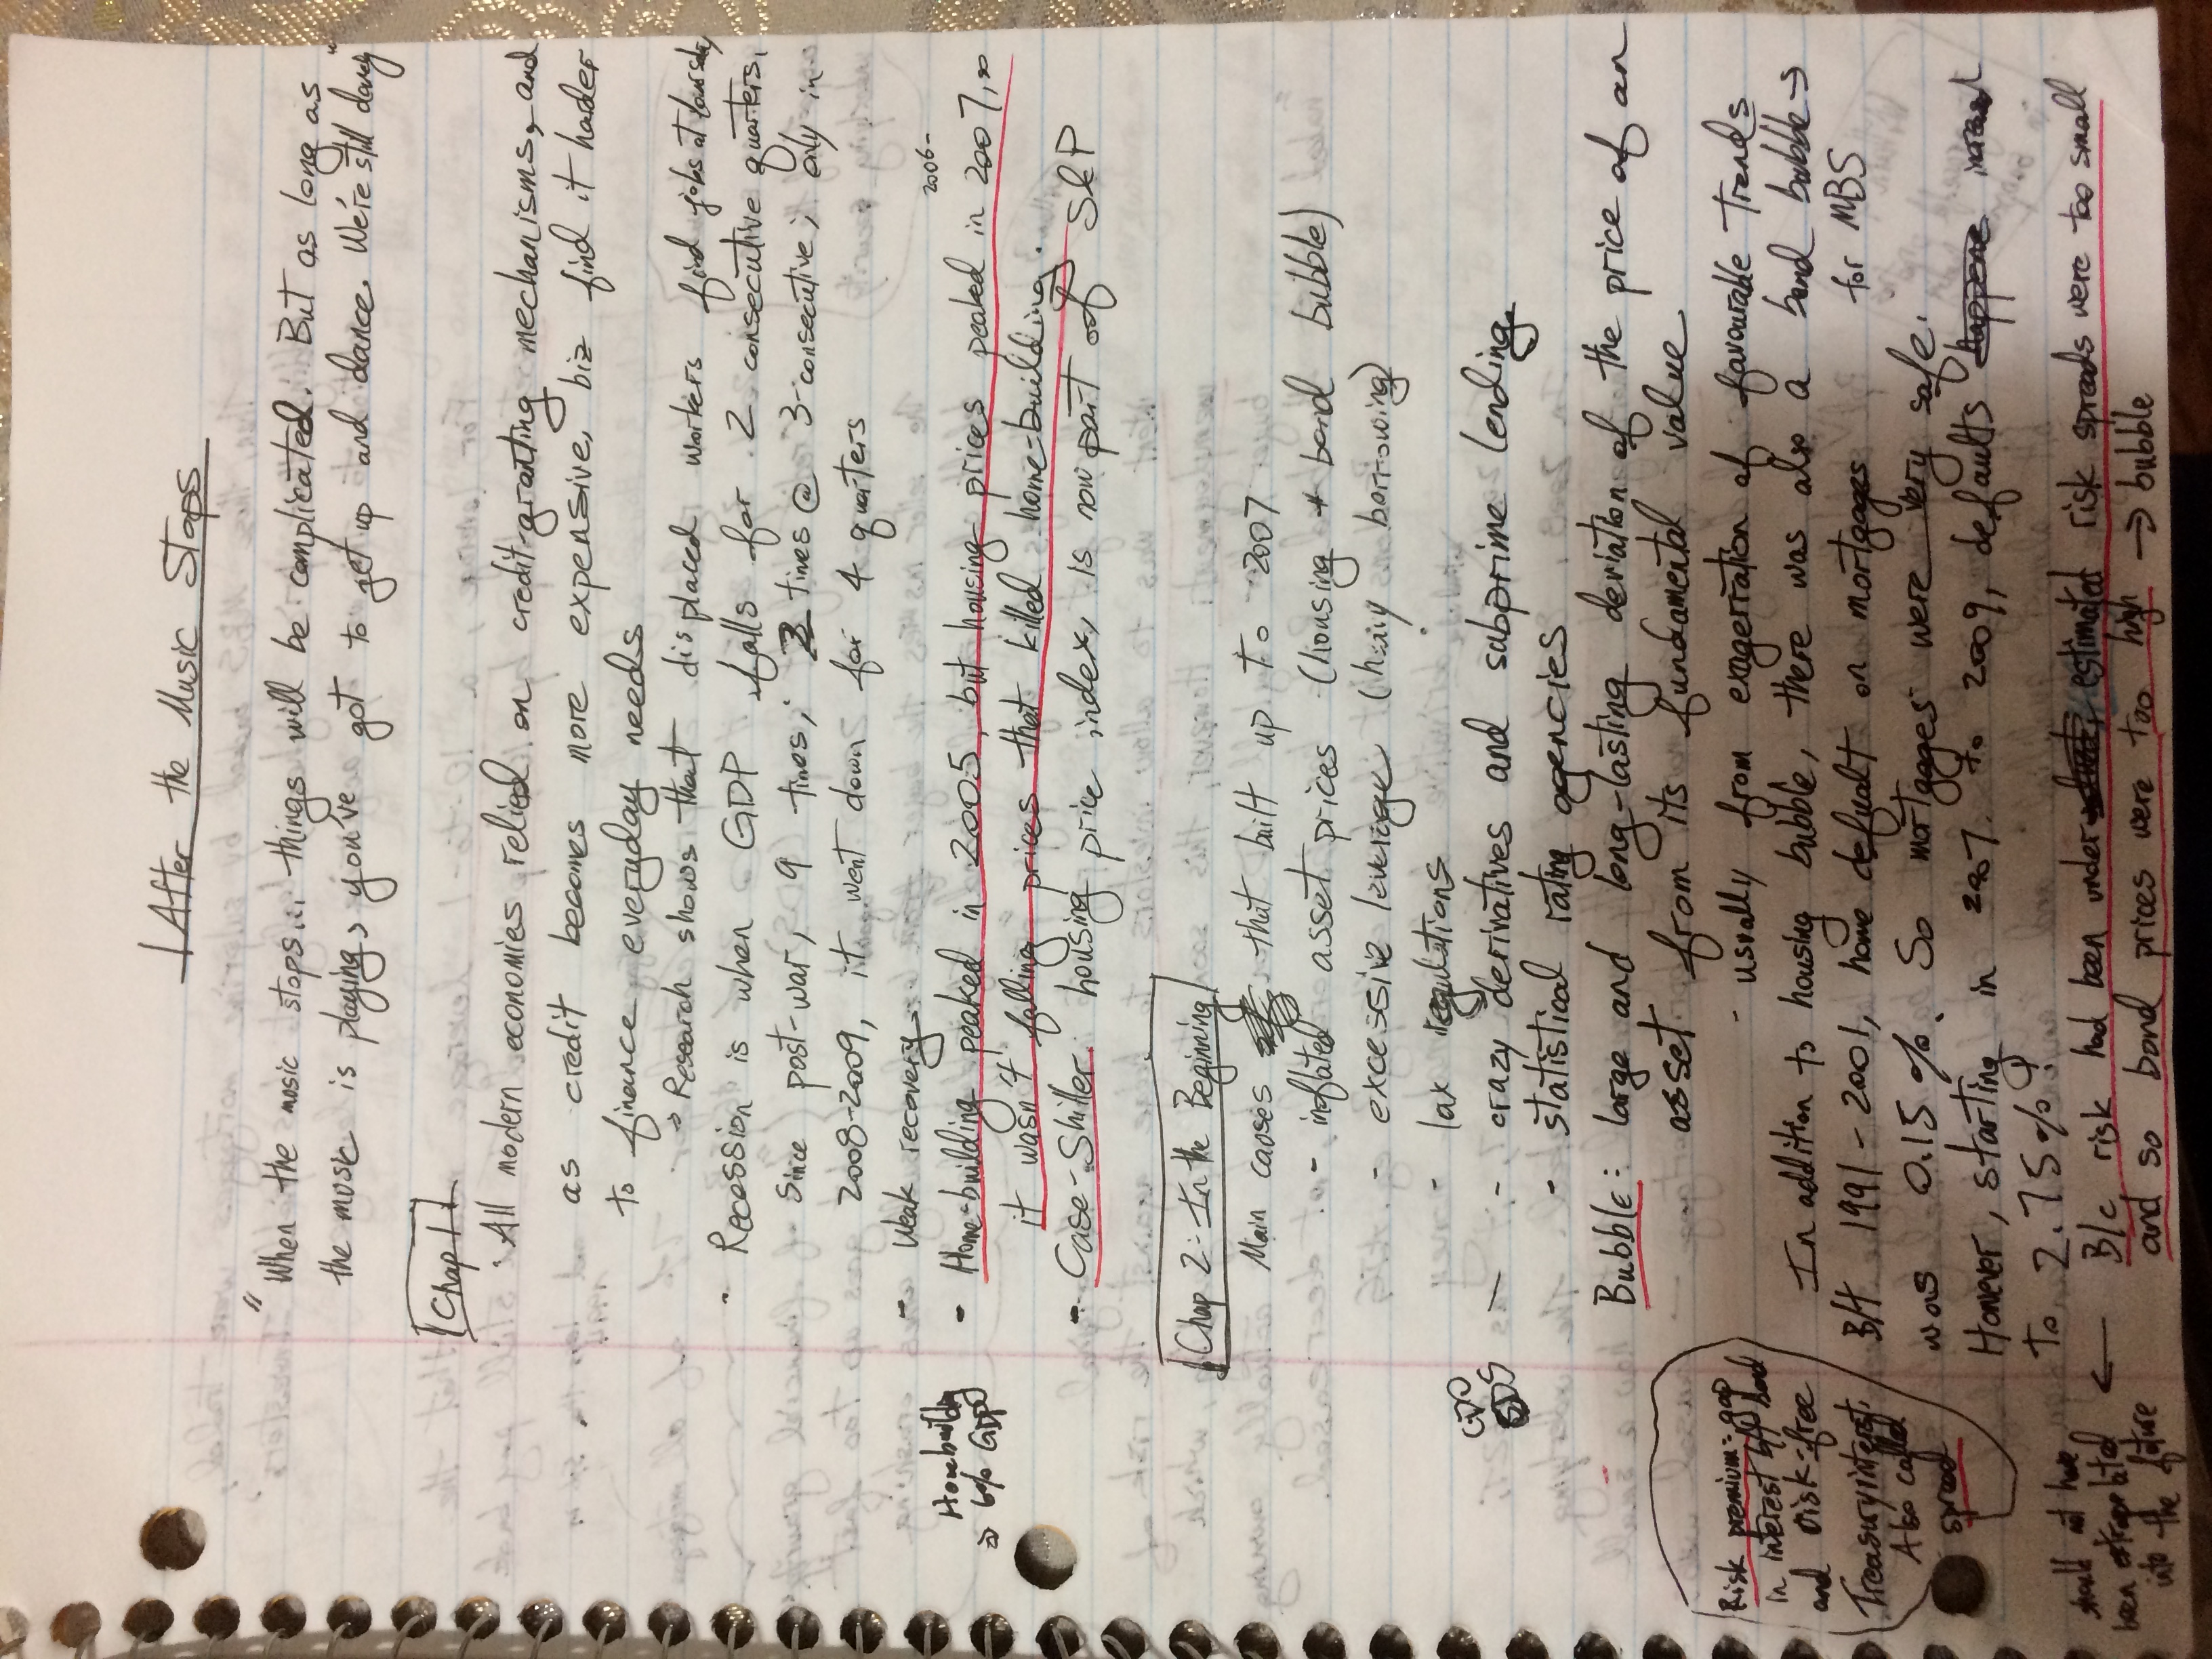 After the Music Stops
"When the music stops... things will be complicated. But as long as
the music is playing, you've got to get up and dance. We're still dancing"
Chap 1
· All modern economies relied on credit-granting mechanisms, and
as credit becomes more expensive, biz find it harder
to finance everyday needs
→ Research shows that displaced workers find jobs at lower salary
- Recession is when GDP falls for 2 consecutive quarters,
since post-war, 9 times; 2 times @ 3-consecutive; only in
2008-2009, it went down for 4 quarters
- Weak recovery
2006-
Homebuilding
→ 6% GDP
- Home-building peaked in 2005, but housing prices peaked in 2007, so
it wasn't falling prices that killed home-building.
- Case-Shiller housing price index, is now part of S&P
Chap 2: In the Beginning
Main causes that built up to 2007
- inflated asset prices (housing + bond bubble)
- excessive leverage (heavy borrowing)
- lax regulations
CDO
CDS
- - crazy derivatives and subprime lending
- statistical rating agencies
Bubble: large and long-lasting deviation of the price of an
asset from its fundamental value
- usually from exagerration of favourable trends
Risk premium: gap
in interest b/t bond
and risk-free
Treasury interest.
Also called
spread
In addition to housing bubble, there was also a bond bubble →
for MBS
B/t 1991-2001, home defualt on mortgages
was 0.15%. So mortgages were very safe.
However, starting in 2007 to 2009, defaults happene increased
to 2.75%!
B/c risk had been under estimated risk spreads were too small
and so bond prices were too high → bubble
← should not have
been extrapolated
into the future